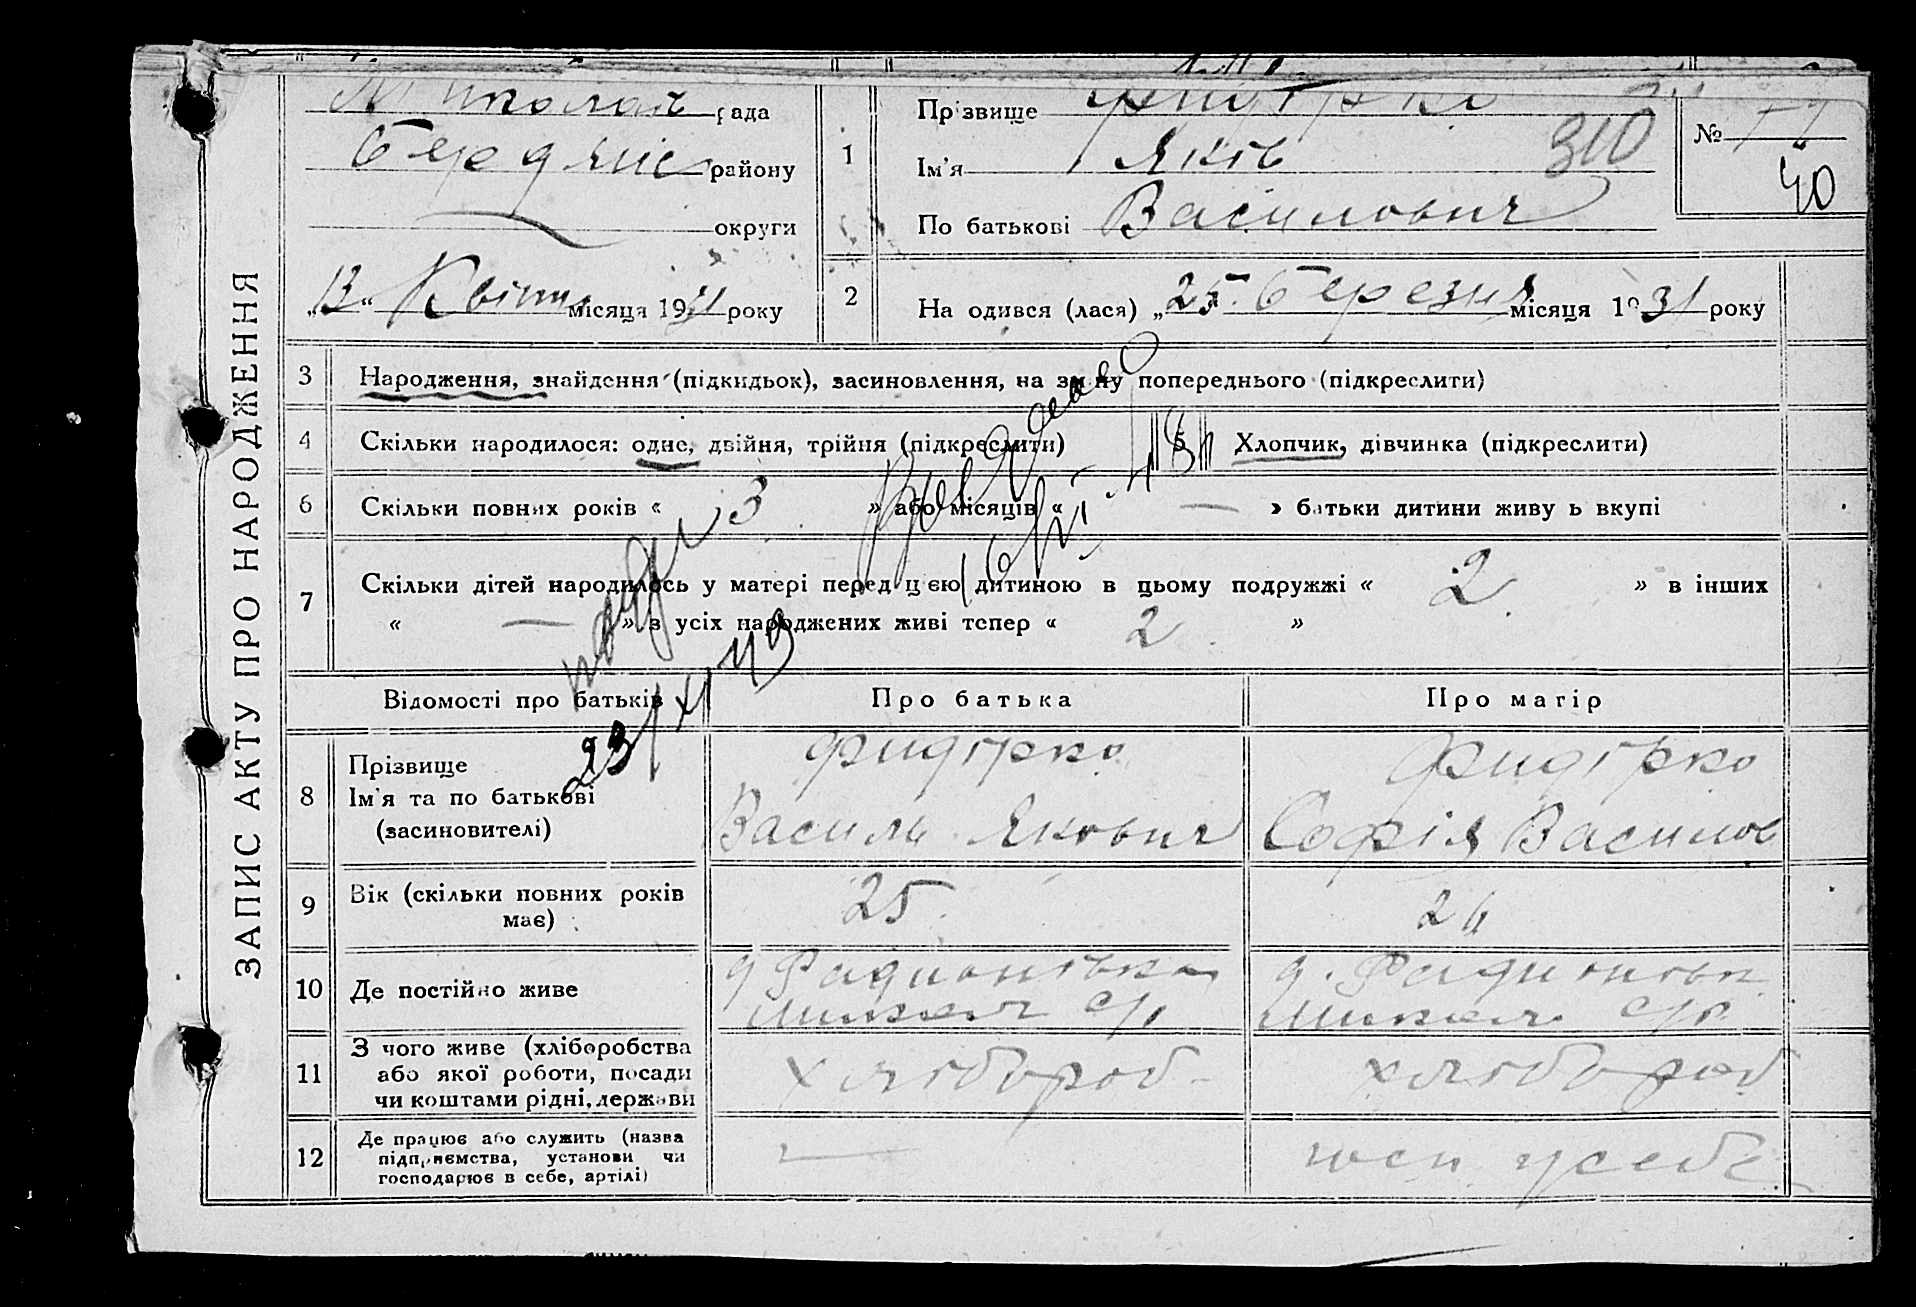 ЗАПИС АКТУ ПРО НАРОДЖЕННЯ
Миколаїв рада
Бердянс району
округи
„13“ Квітня місяця 1931 року
1
Прізвище Фидірко
Ім'я Яків
По батькові Василович
310
№
40
2
На одився (лася) „25 березня місяця 1931 року
3 Народження, знайдення (підкидьок), засиновлення, на зміну попереднього (підкреслити)
4 Скільки народилося: одне, двійня, трійня (підкреслити)
5 Хлопчик, дівчинка (підкреслити)
6 Скільки повних років « 3 » або місяців « — » батьки дитини живу ь вкупі
7 Скільки дітей народилось у матері перед цією дитиною в цьому подружжі « 2 » в інших
« — » з усіх народжених живі тепер « 2 »
23/XI 49
Відомості про батьків
Про батька
Про матір
8 Прізвище
Ім'я та по батькові
(засиновителі)
Фидірко
Василь Якович
Фидірко
Софія Василов
9 Вік (скільки повних років
має)
25
24
10 Де постійно живе
д Радионівка
Микол с/р
д. Радионовк
Микол с/р
11 З чого живе (хліборобства
або якої роботи, посади
чи коштами рідні, держави
хлібороб
хлібороб
12 Де працює або служить (назва
підприємства, установи чи
господарює в себе, артілі)
—
госп. усебе